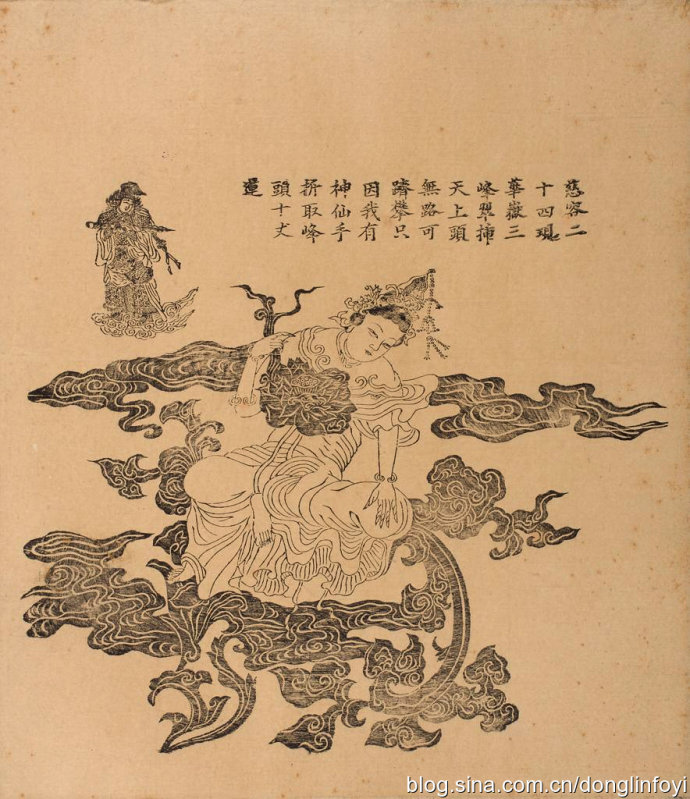 慈容二
十四現
華嶽三
峰翠插
天上頭
無路可
躋攀只
因我有
神仙手
折取峰
頭十丈
蓮
blog.sina.com.cn/donglinfoyi